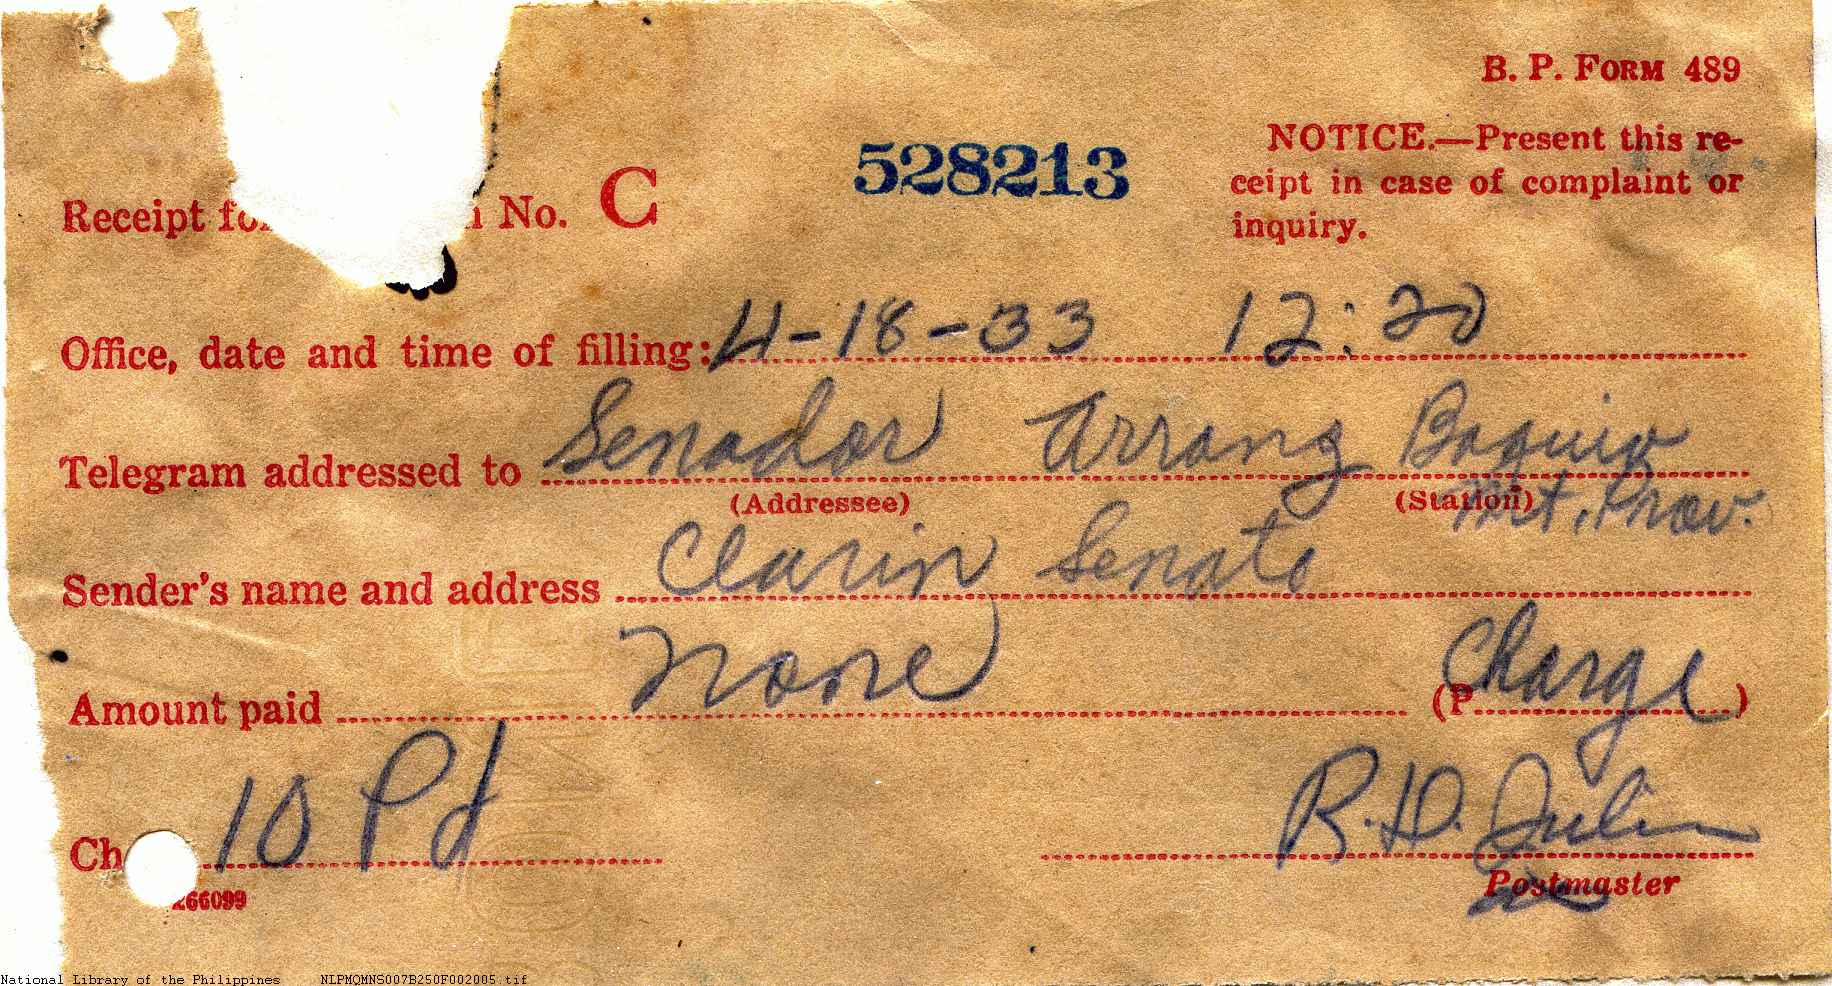 B. P. FORM 489
NOTICE.—Present this re-
ceipt in case of complaint or
inquiry.
528213
Receipt for No. C
Office, date and time of filling: 4-18-33 12:20
Telegram addressed to Senador Arrang Baguio
(Addressee) (Station) Mt. Prov.
Sender's name and address Clarin Senate
Amount paid None (P Charge)
Ch 10 Pd R. H. Julin
266099 Postmaster
National Library of the Philippines NLPMQMNS007B250F002005.tif